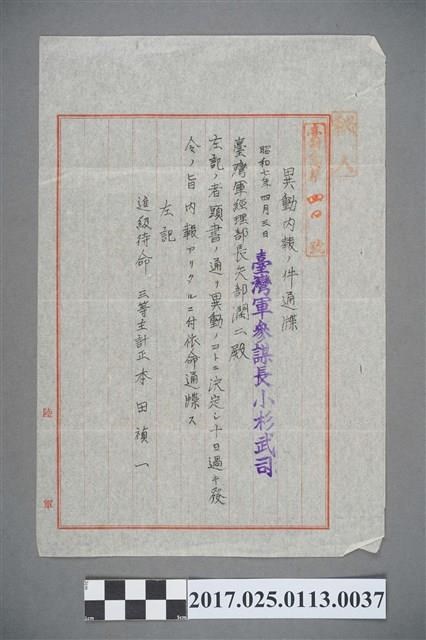 秘人
臺參人第四〇號
異動内報ノ件通牒
昭和七年四月三日
臺灣軍參謀長小杉武司
臺灣軍經理部長矢部潤二殿
左記ノ者頭書ノ通リ異動ノコトニ決定シ十日過キ發
令ノ旨内報アリタルニ付依命通牒ス
左記
進級待命 三等主計正 本田禎一
陸軍
2017.025.0113.0037